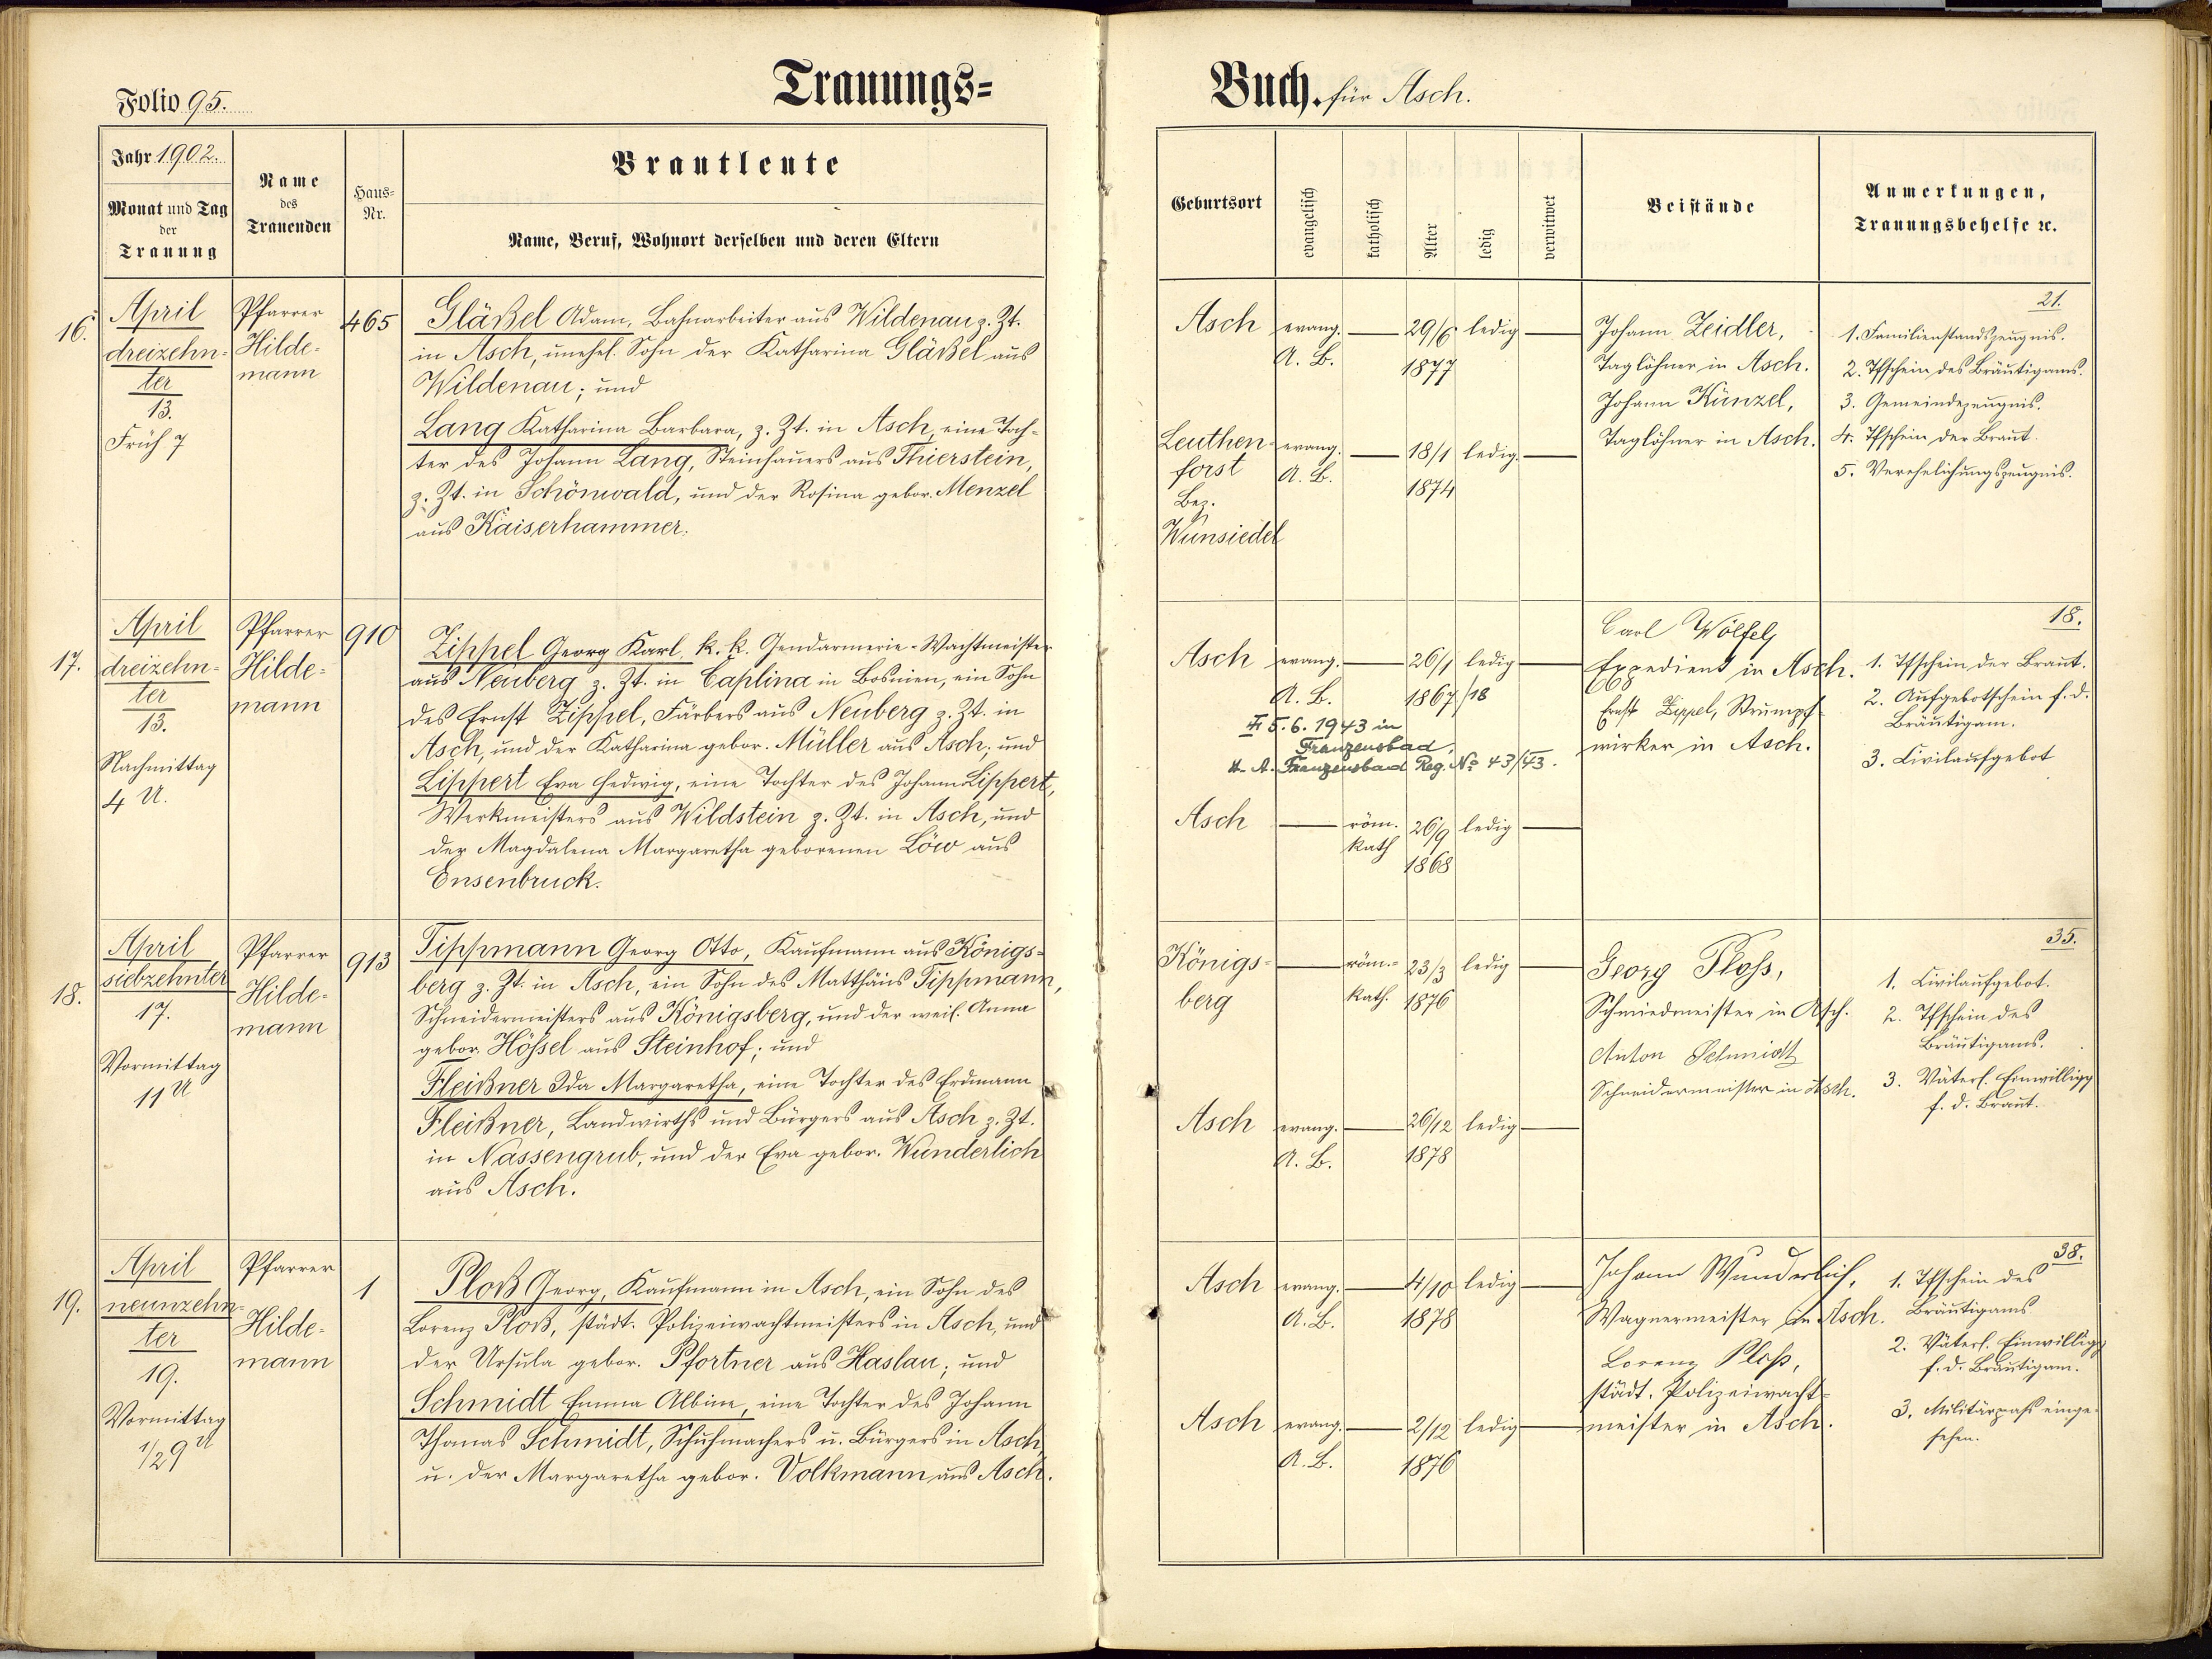 Folio 95.
Trauungs=
Buch. für Asch.
Jahr 1902.
Monat und Tag
der
Trauung
Name
des
Trauenden
Haus=
Nr.
Brautleute
Name, Beruf, Wohnort derselben und deren Eltern
Geburtsort
evangelisch
katholisch
Alter
ledig
verwitwet
Beistände
Anmerkungen,
Trauungsbehelfe ꝛc.
16.
April
dreizehn-
ter
13.
Früh 7
Pfarrer
Hilde-
mann
465
Gläßel Adam, Bahnarbeiter aus Wildenau z. Zt.
in Asch, unehel. Sohn der Katharina Gläßel aus
Wildenau; und
Lang Katharina Barbara, z. Zt. in Asch, eine Toch-
ter des Johann Lang, Steinhauers aus Thierstein,
z. Zt. in Schönwald, und der Rosina gebor. Menzel
aus Kaiserhammer.
Asch evang. — 29/6 ledig —
A. B. 1877
Leuthen- evang. — 18/1 ledig. —
forst A. B. 1874
Bez.
Wunsiedel
Johann Zeidler,
Taglöhner in Asch.
Johann Künzel,
Taglöhner in Asch.
21.
1. Familienstandszeugnis.
2. Tfschein des Bräutigams.
3. Gemeindezeugnis.
4. Tfschein der Braut.
5. Verehelichungszeugnis.
17.
April
dreizehn-
ter
13.
Nachmittag
4 U.
Pfarrer
Hilde-
mann
910
Zippel Georg Karl, k. k. Gendarmerie-Wachtmeister
aus Neuberg z. Zt. in Caplina in Bosnien, ein Sohn
des Ernst Zippel, Färbers aus Neuberg z. Zt. in
Asch, und der Katharina gebor. Müller aus Asch; und
Lippert Eva Hedwig, eine Tochter des Johann Lippert,
Werkmeisters aus Wildstein z. Zt. in Asch, und
der Magdalena Margaretha geborenen Löw aus
Ensenbruck.
Asch evang. — 26/1 ledig —
A. B. 1867/18
5.6.1943 in
Franzensbad,
Franzensbad Reg. No 43/43.
Asch — röm. 26/9 ledig —
kath 1868
Carl Wölfel,
Expedient in Asch.
Ernst Zippel, Strumpf-
wirker in Asch.
18.
1. Tfschein der Braut.
2. Aufgebotschein f. d.
Bräutigam.
3. Civilaufgebot
18.
April
siebzehnter
17.
Vormittag
11 U
Pfarrer
Hilde-
mann
913
Tippmann Georg Otto, Kaufmann aus Königs-
berg z. Zt. in Asch, ein Sohn des Matthäus Tippmann,
Schneidermeisters aus Königsberg, und der weil. Anna
gebor. Hössel aus Steinhof; und
Fleißner Ida Margaretha, eine Tochter des Erdmann
Fleißner, Landwirths und Bürgers aus Asch z. Zt.
in Nassengrub, und der Eva gebor. Wunderlich
aus Asch.
Königs- — röm.- 23/3 ledig —
berg kath. 1876
Asch evang. — 26/12 ledig —
A. B. 1878
Georg Ploss,
Schmiedmeister in Asch.
Anton Schmidt
Schneidermeister in Asch.
35.
1. Civilaufgebot.
2. Tfschein des
Bräutigams.
3. Väterl. Einwilligg
f. d. Braut.
19.
April
neunzehn-
ter
19.
Vormittag
1/2 9 U
Pfarrer
Hilde-
mann
1
Ploß Georg, Kaufmann in Asch, ein Sohn des
Lorenz Ploß, städt. Polizeiwachtmeisters in Asch, und
der Ursula gebor. Pfortner aus Haslau; und
Schmidt Emma Albine, eine Tochter des Johann
Thomas Schmidt, Schuhmachers u. Bürgers in Asch,
u. der Margaretha gebor. Volkmann aus Asch.
Asch evang. — 4/10 ledig —
A. B. 1878
Asch evang. — 2/12 ledig —
A. B. 1876
Johann Wunderlich,
Wagnermeister in Asch.
Lorenz Ploß,
städt. Polizeiwacht-
meister in Asch.
38.
1. Tfschein des
Bräutigams
2. Väterl. Einwilligg
f. d. Bräutigam.
3. Militärpaß einge-
sehen.